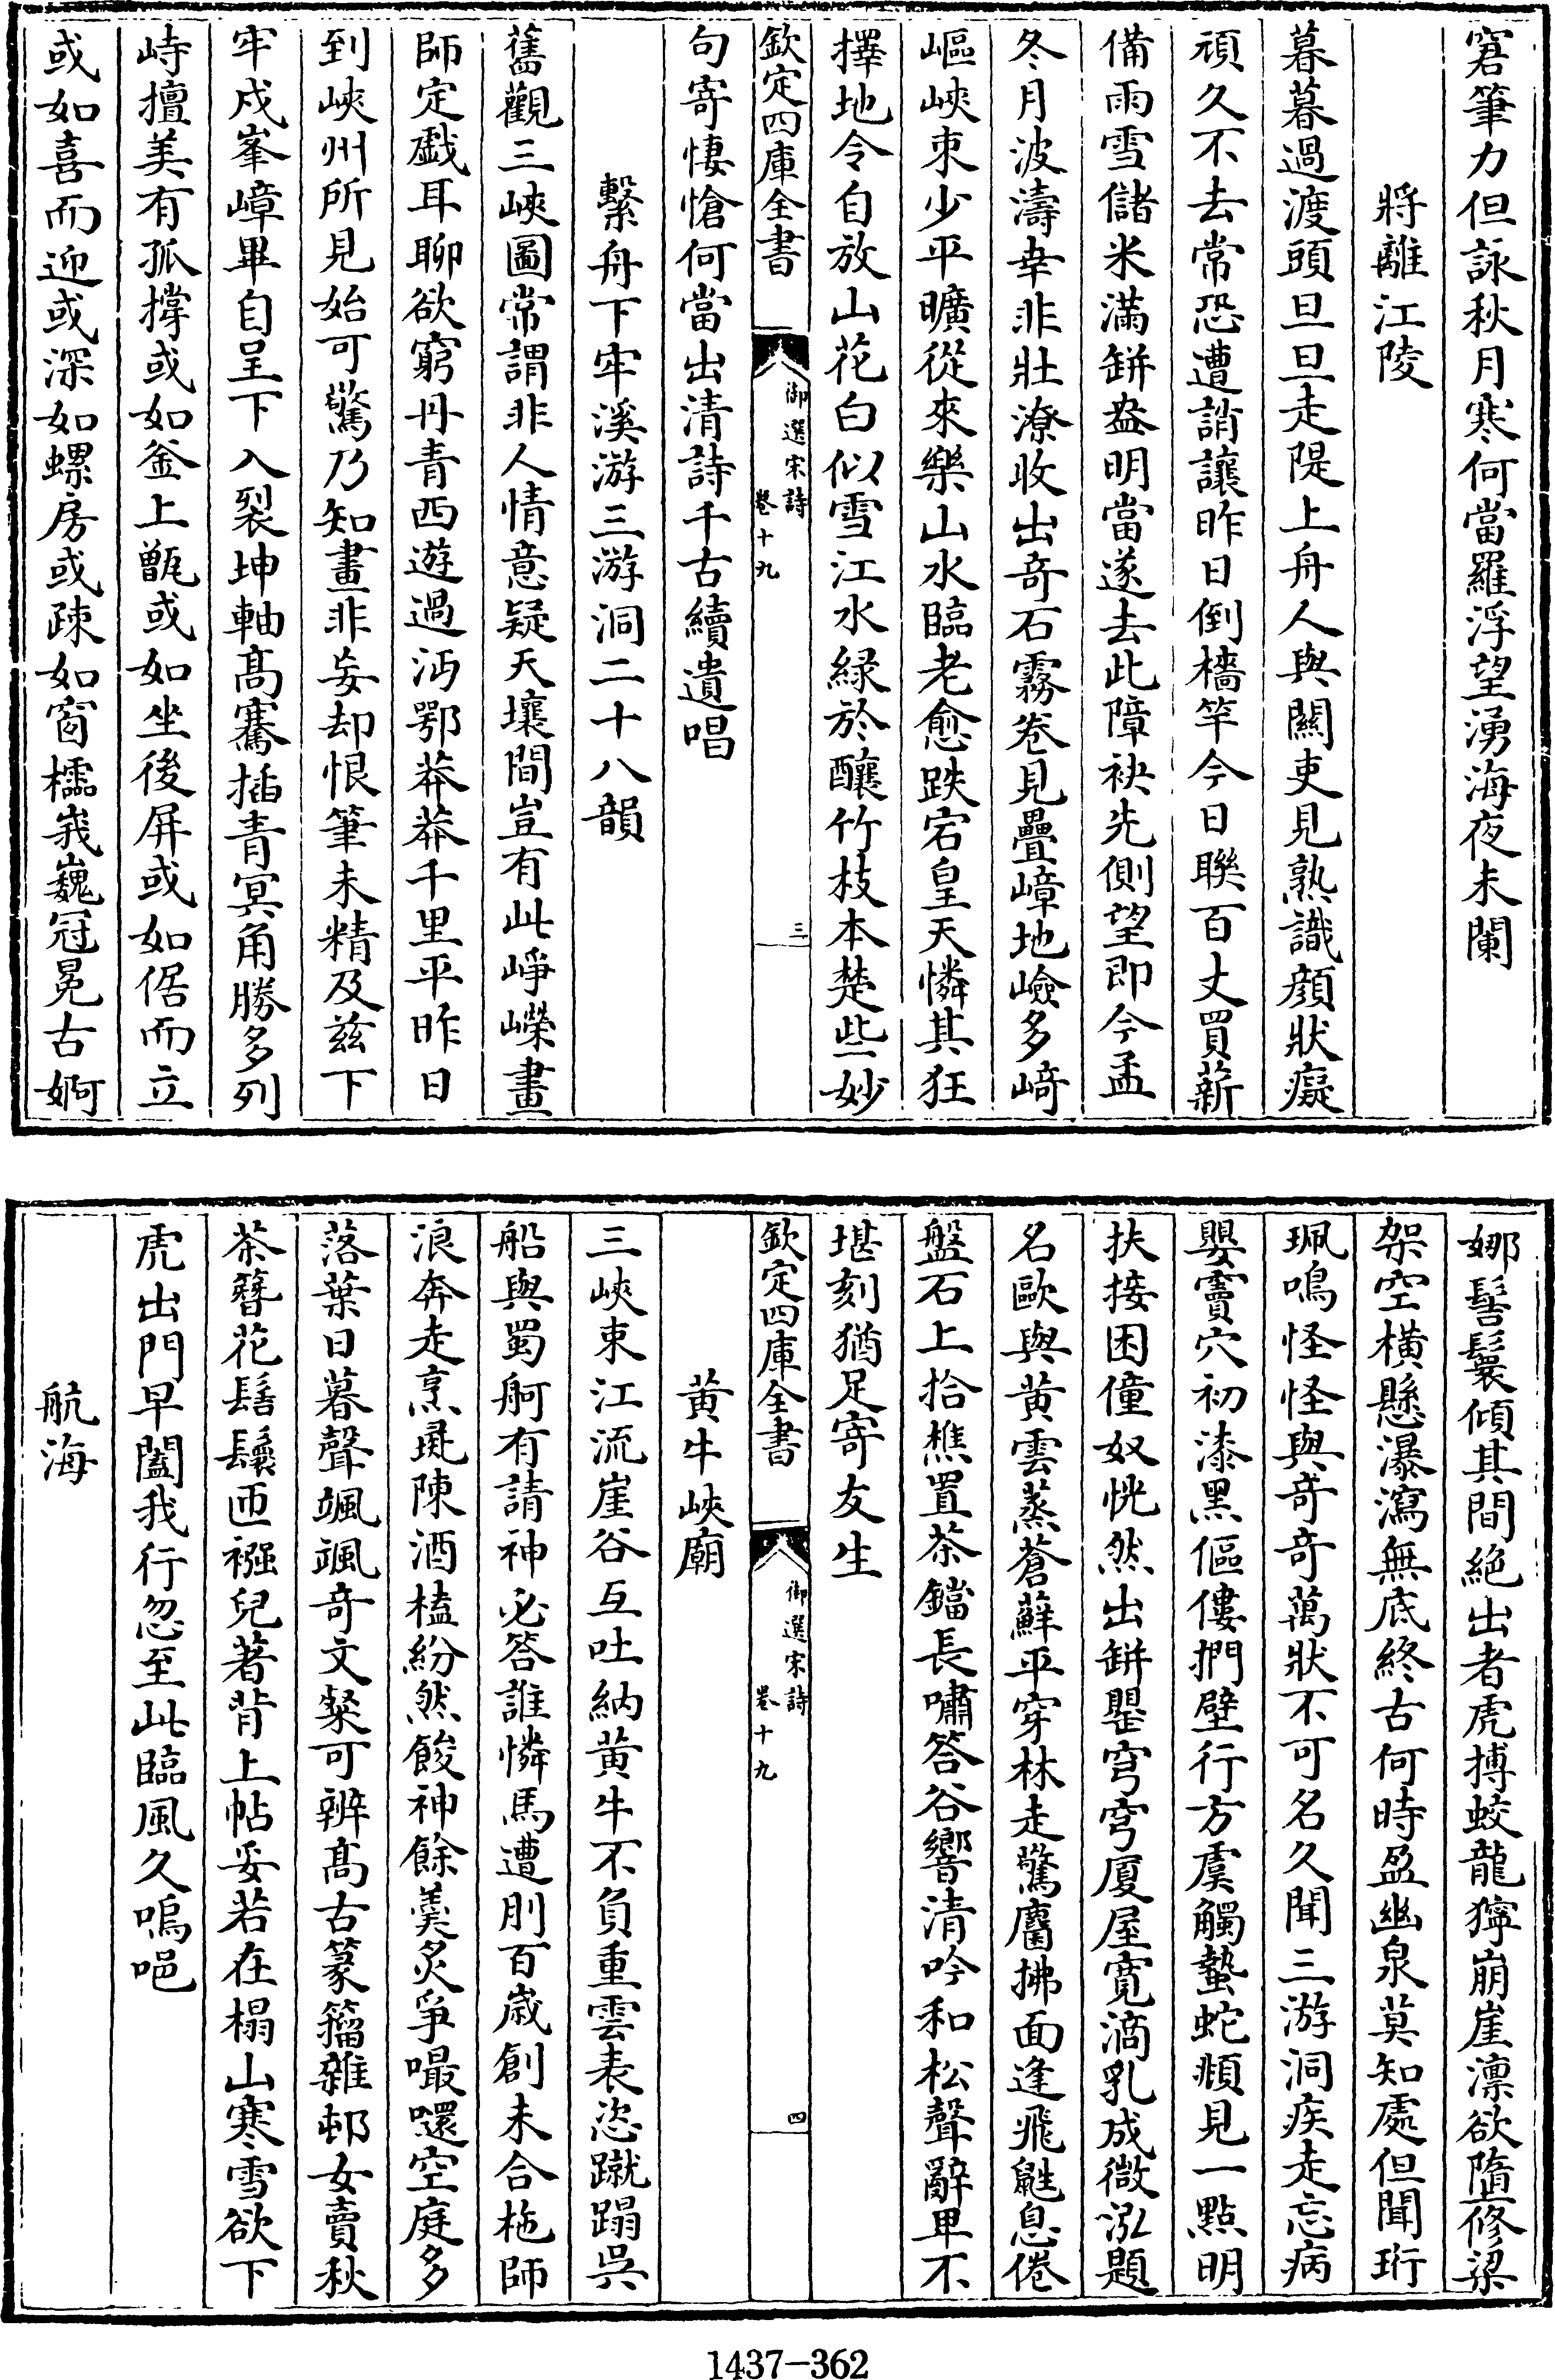 窘筆力但詠秋月寒何當羅浮望湧海夜未闌
將離江陵
暮暮過渡頭旦旦走隄上舟人與闗吏見熟識顔狀癡
頑久不去常恐遭誚讓昨日倒檣竿今日聯百丈買薪
備雨雪儲米滿缾盎明當遂去此障袂先側望即今孟
冬月波濤幸非壯潦收出竒石霧巻見疊嶂地嶮多﨑
嶇峽束少平曠從來樂山水臨老愈跌宕皇天憐其狂
擇地令自放山花白似雪江水緑於釀竹枝本楚些妙
欽定四庫全書
御選宋詩
巻十九
三
句寄悽愴何當出清詩千古續遺唱
繫舟下牢溪游三游洞二十八韻
舊觀三峽圖常謂非人情意疑天壤間豈有此崢嶸畫
師定戲耳聊欲窮丹青西遊過沔鄂莽莽千里平昨日
到峽州所見始可驚乃知畫非妄却恨筆未精及兹下
牢戍峯嶂畢自呈下入裂坤軸髙騫插青㝠角勝多列
峙擅美有孤撑或如釜上甑或如坐後屏或如倨而立
或如喜而迎或深如螺房或疎如窗櫺峩巍冠冕古婀
娜髻鬟傾其間絶出者虎搏蛟龍獰崩崖凛欲墮修梁
架空横懸瀑瀉無底終古何時盈幽泉莫知處但聞珩
珮鳴怪怪與竒竒萬狀不可名久聞三游洞疾走忘病
嬰竇穴初漆黑傴僂捫壁行方虞觸蟄蛇頫見一點明
扶接困僮奴恍然出缾罌穹穹厦屋寛滴乳成微泓題
名歐與黄雲蒸蒼蘚平穿林走驚麏拂面逢飛鼪息倦
盤石上拾樵置茶鐺長嘯答谷響清吟和松聲辭卑不
堪刻猶足寄友生
欽定四庫全書
御選宋詩
巻十九
四
黄牛峽廟
三峽束江流崖谷互吐納黄牛不負重雲表恣蹴蹋吳
船與蜀舸有請神必答誰憐馬遭刖百歲創未合柂師
浪奔走烹𡱝陳酒榼紛然餕神餘羮炙爭嘬𠾱空庭多
落葉日暮聲颯颯竒文粲可辨髙古篆籀雜邨女賣秋
茶簪花髻鬟匝襁兒著背上帖妥若在榻山寒雪欲下
虎出門早闔我行忽至此臨風久嗚唈
航海
1437-362